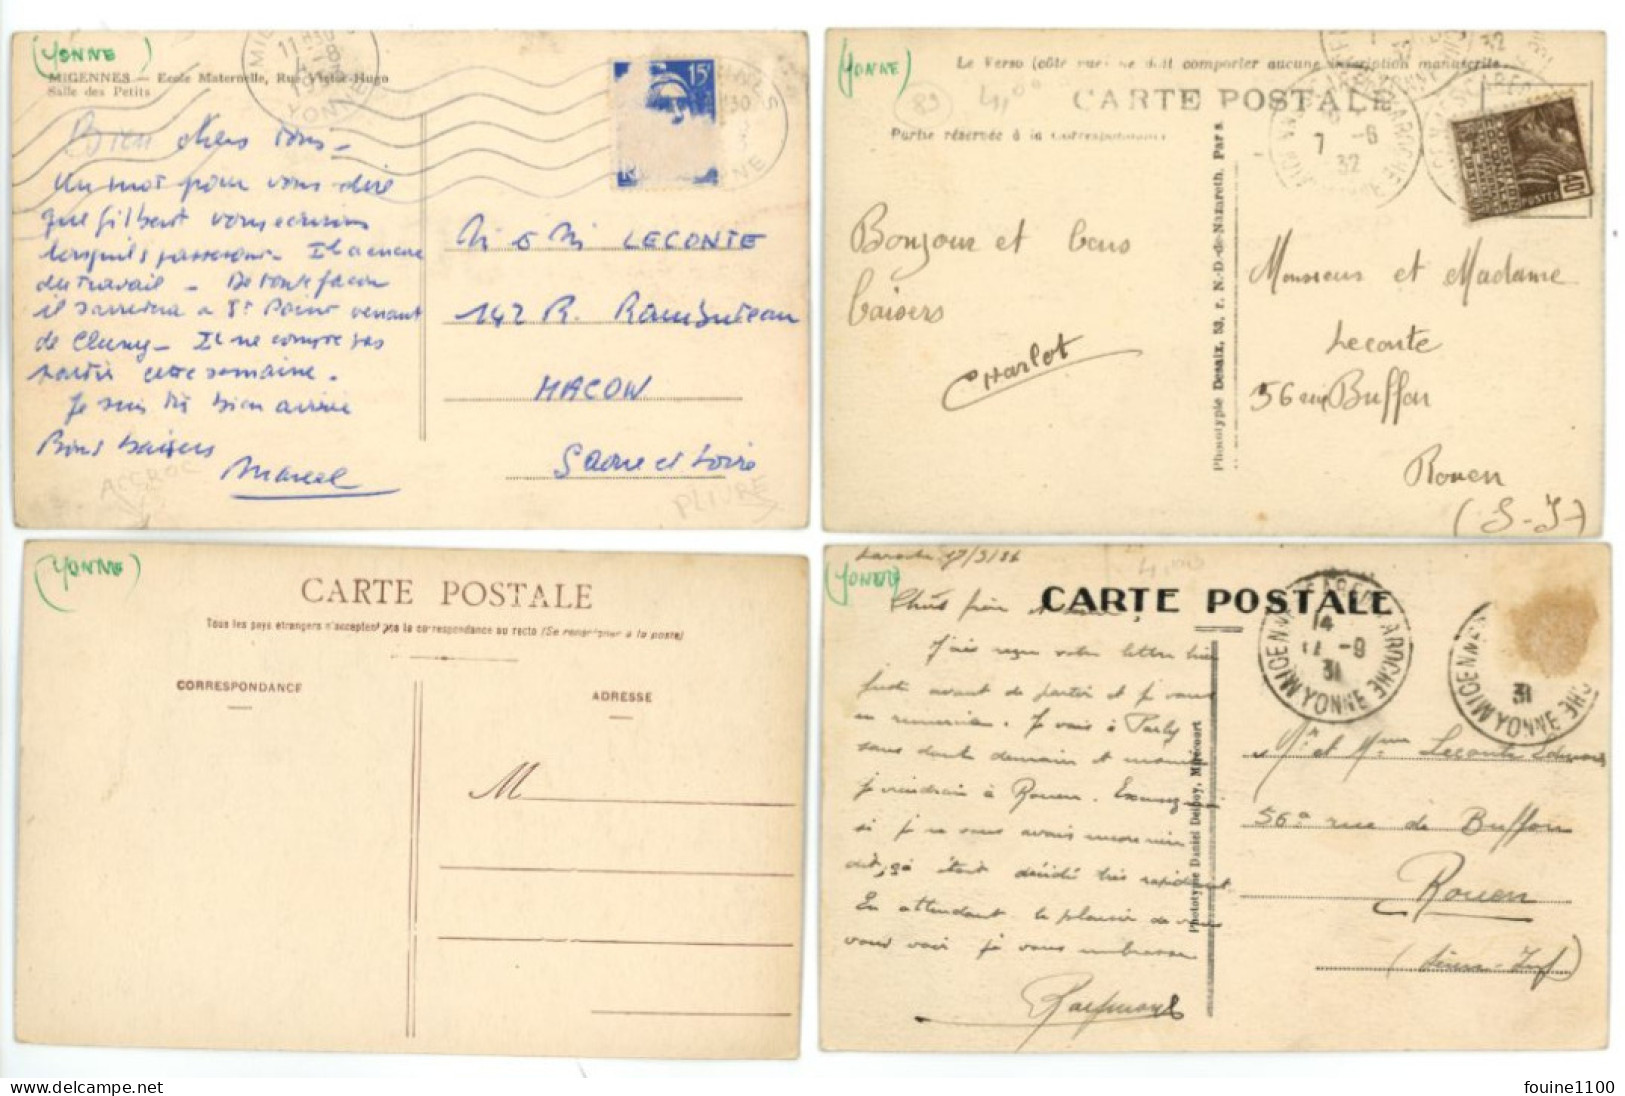 (YONNE)
MIGENNES — Ecole Maternelle, Rue Victor-Hugo
Salle des Petits
Bien chers tous –
Un mot pour vous dire
que Gilbert vous
lorsqu'il passera. Il a encore
du travail – De toute façon
il s'arretera a St Point venant
de Cluny – Il ne compte pas
partir cette semaine.
Je suis très bien arrivé
Bons baisers
Marcel
ACCROC
15F
LECONTE
142 R. Rambuteau
MACON
Saone et Loire
PLIURE
(YONNE)
Le Verso (côté vue) ne doit comporter aucune inscription manuscrite.
89
4,00
CARTE POSTALE
Partie réservée à la Correspondance
7 -6
32
40c
POSTES
Bonjour et bons
baisers
Charlot
Phototypie Desaix, 53, r. N.-D.-de-Nazareth, Paris
Monsieur et Madame
Leconte
56 rue Buffon
Rouen
(S-I-)
(YONNE)
CARTE POSTALE
Tous les pays etrangers n'acceptent pas la correspondance au recto (Se renseigner à la poste)
CORRESPONDANCE
ADRESSE
M
(YONNE)
Laroche 17/9/31
4,00
CARTE POSTALE
Chers frère et
J'ai reçu votre lettre hier
juste avant de partir et je vous
en remercie. Je vais à Parly
sans doute demain et
je viendrai à Rouen. Excusez-moi
si je ne vous avais rien
dit, ça était décidé très rapidement
En attendant le plaisir de vous
voir je vous embrasse
Raymond
Phototypie Daniel Delboy, Mirecourt
MIGENNES-LAROCHE YONNE
14
-9
31
MIGENNES YONNE
31
Mr et Mme Leconte Edouard
56a rue de Buffon
Rouen
(Seine-Inf)
Delcampe.net
fouine1100